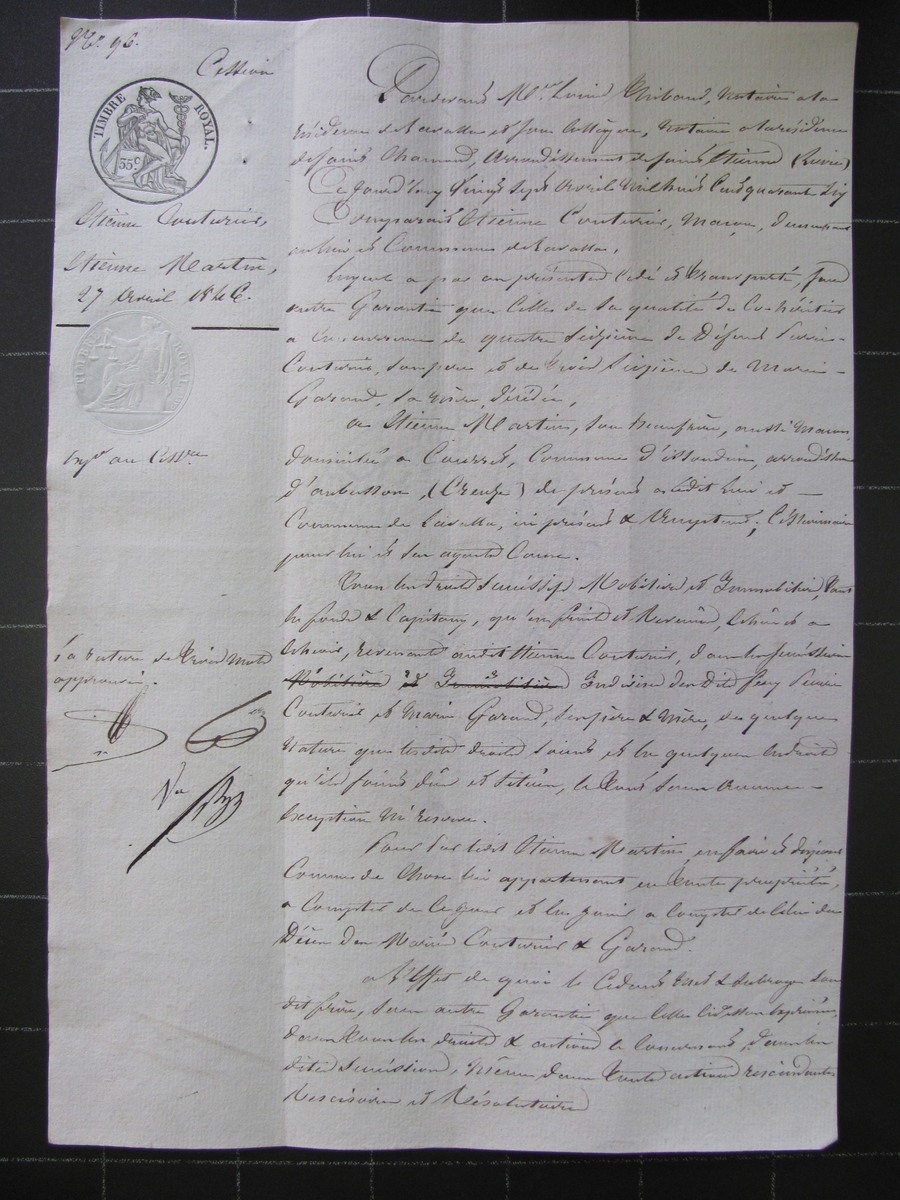 N° 96.
Cession
TIMBRE ROYAL.
35 c
Etienne Couturier,
Etienne Martin,
27 avril 1846.
TIMBRE ROYAL
la rature de trois mots
approuvée.
Pardevant Me Louis Thibaud, notaire à la
résidence de Lavalla et son Collègue, notaire à la résidence
de Saint Chamond, arrondissement de Saint Etienne (Loire)
Ce jourd'huy vingt sept avril mil huit cent quarante six
Comparait Etienne Couturier, Maçon, demeurant
au lieu et Commune de Lavalla,
Lequel a par ces présentes cédé et transporté, sans
autre Garantie que celles de sa qualité de Co-héritier
a Concurrence de quatre Seizième de Défunt Pierre
Couturier, son père et de trois Seizième de Marie
Garaud, sa mère, décédée,
a Etienne Martin, son beau frère, aussi Maçon,
domicilié a Courset, Commune d'issoudun, arrondissem
d'aubusson, (Creuze) de présent audit lieu et
Commune de Lavalla, ici présent & acceptant, Cessionnaire
pour lui et ses ayants Cause.
Tous les droits Successifs Mobiliers et Immobiliers, tant
en fonds & Capitaux, qu'en fruits et Revenus, échus et a
échoir, revenant audit Etienne Couturier, dans les successions
Mobilière et Immobilière Indivises des dits feus Pierre
Couturier et Marie Garaud, ses père & mère, de quelque
Nature que lesdits droits soient et en quelque endroit
qu'ils soient dûs et situés, le tout sans aucune
exception ni réserve.
Pour par ledit Etienne Martin, en faire et disposer
Comme de Chose lui appartenant en toute propriété,
a Compter de ce jour et en jouir a Compter de celui du
Décès des Mariés Couturier & Garaud.
a l'Effet de quoi le Cédant met & subroge son
dit frère, sans autre Garantie que celles ci dessus exprimées,
dans tous les droits & actions le Concernant, dans les
dites successions, même dans toute actions rescindantes
Rescisoires et Résolutoires